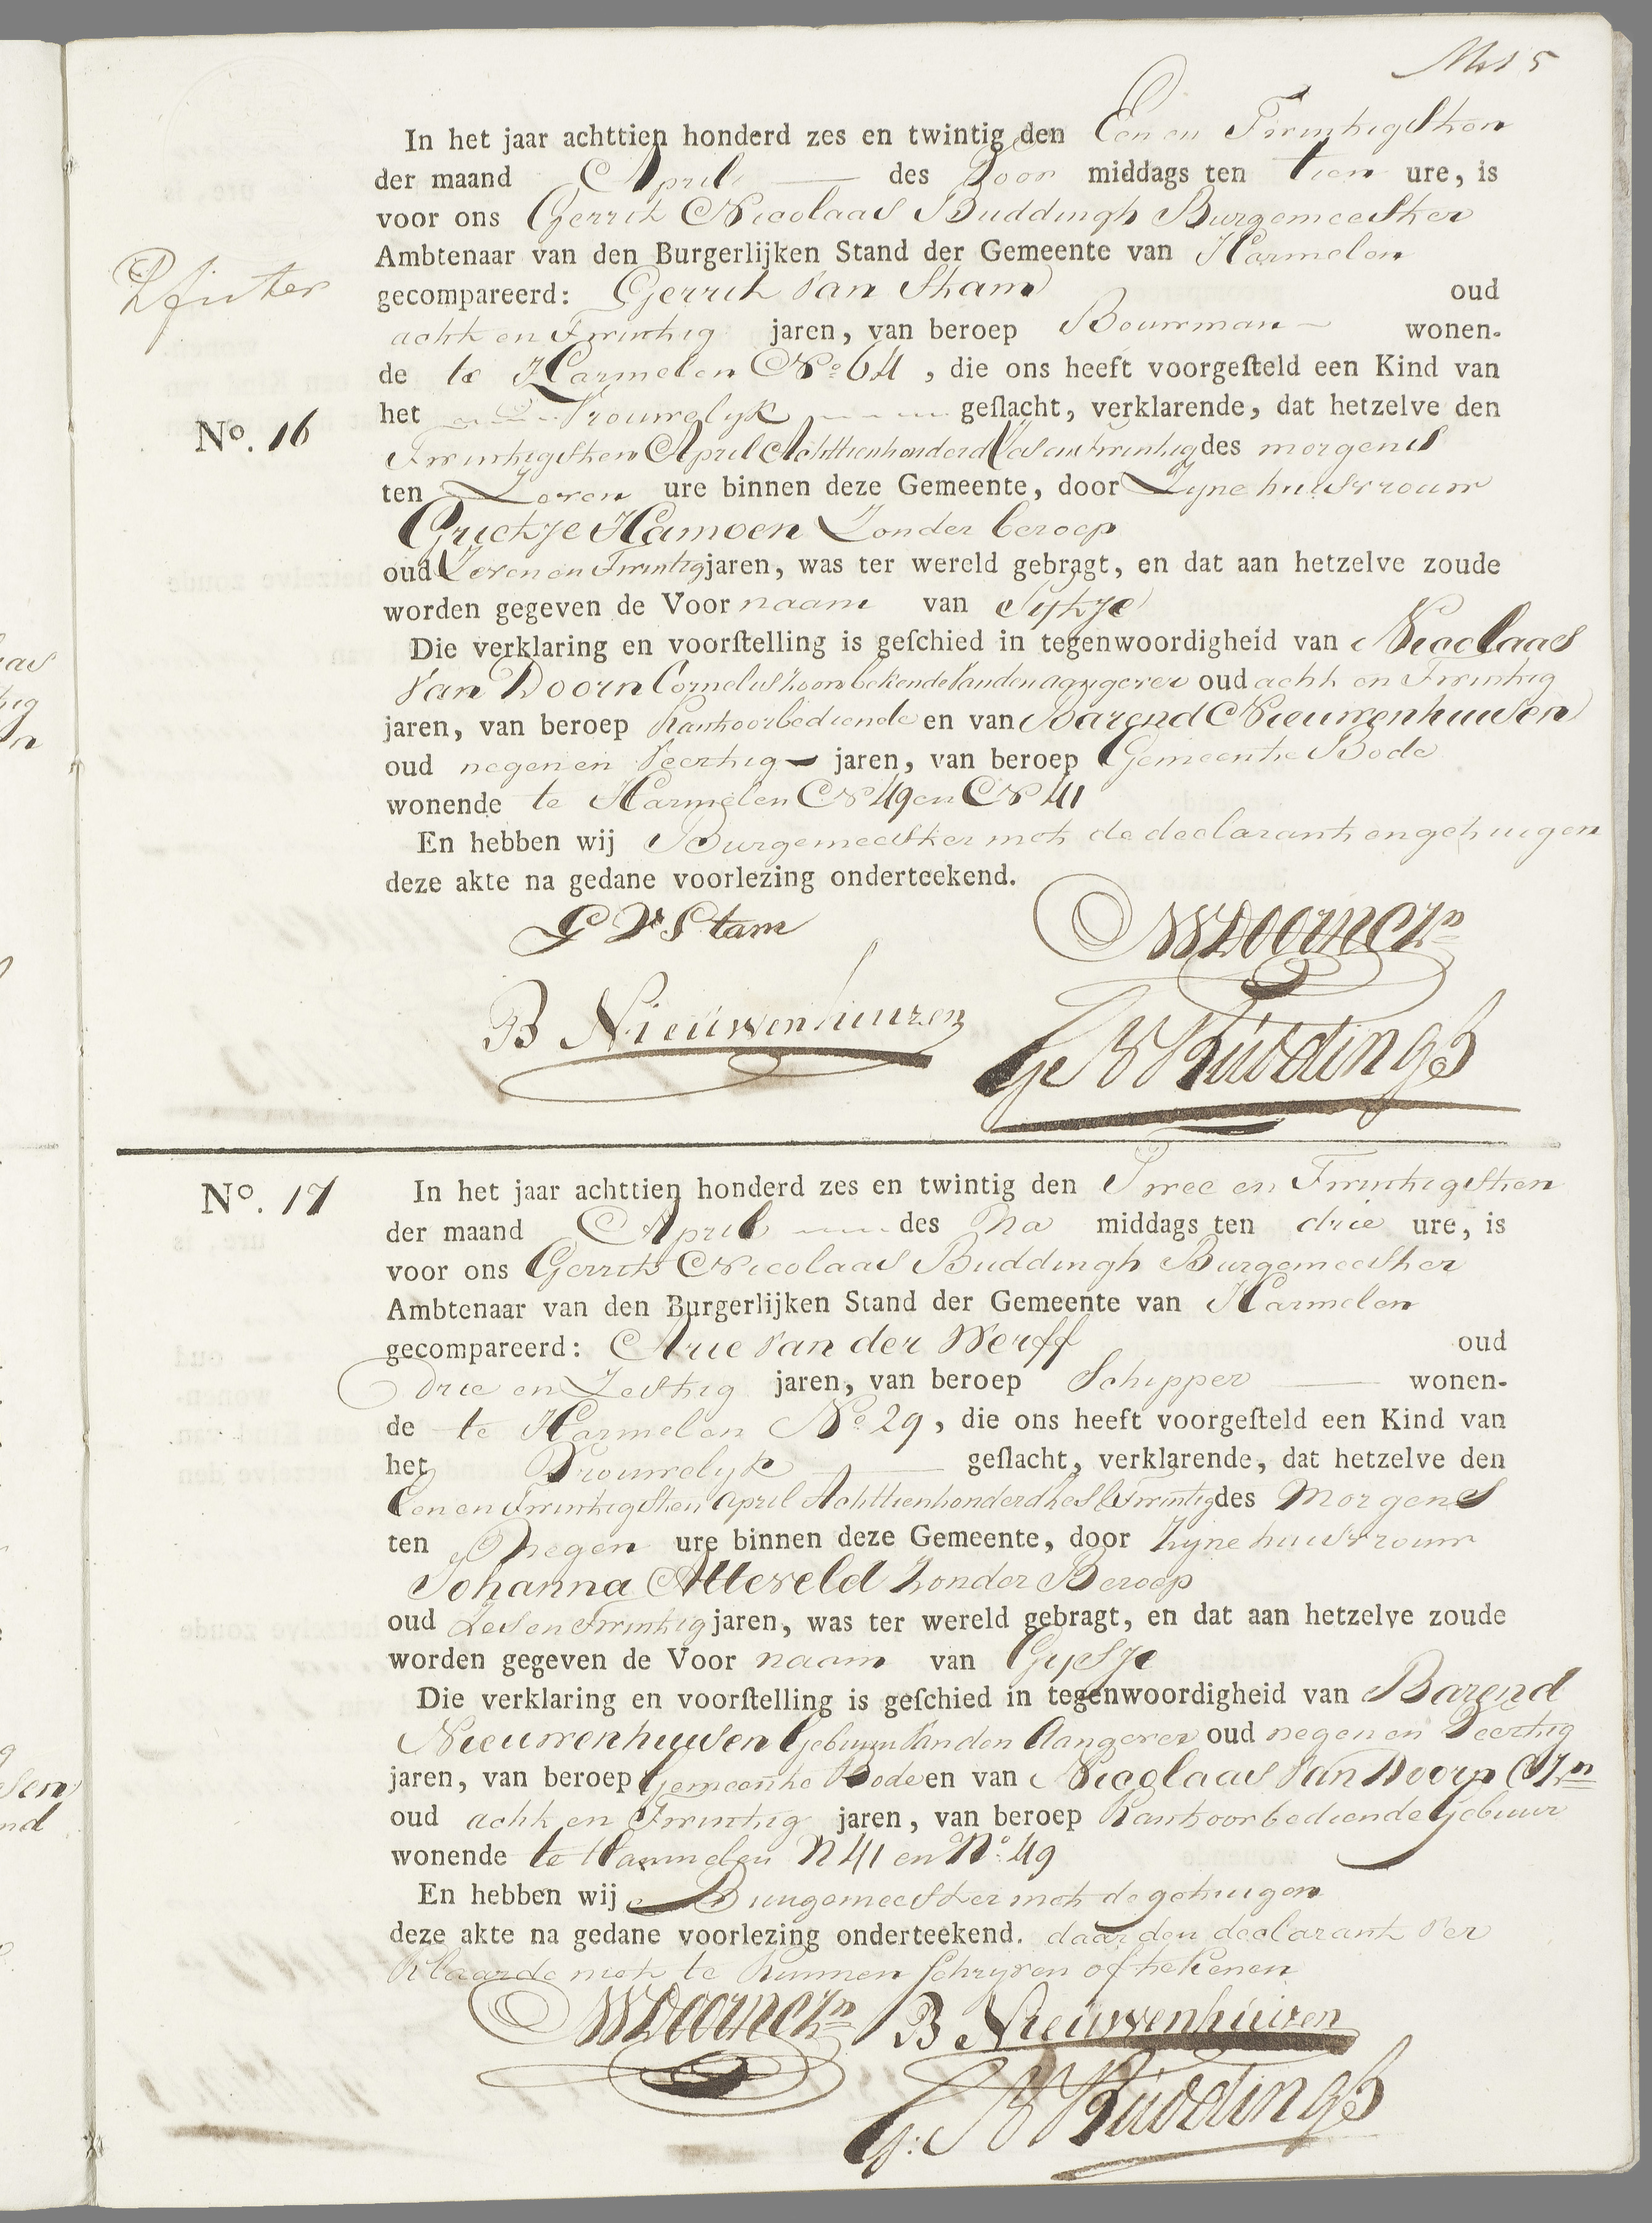 5
In het jaar achttien honderd zes en twintig den Een en Twintigsten
der maand April des Voor middags ten tien ure, is
voor ons Gerrit Nicolaas Buddingh Burgemeester
Ambtenaar van den Burgerlijken Stand der Gemeente van Harmelen
gecompareerd: Gerrit Van Stam oud
acht en Twintig jaren, van beroep Bouwman wonen-
de te Harmelen No 64, die ons heeft voorgesteld een Kind van
het Vrouwelyk geslacht, verklarende, dat hetzelve den
No. 16
Twintigsten April Achttienhonderd Zes en Twintig des morgens
ten Zeven ure binnen deze Gemeente, door Zyne huisvrouw
Grietje Hamoen Zonder beroep
oud Zeven en Twintig jaren, was ter wereld gebragt, en dat aan hetzelve zoude
worden gegeven de Voor naam van Sytje
Die verklaring en voorstelling is geschied in tegenwoordigheid van Nicolaas
Van Doorn Corneliszoon bekende Van den aangever oud acht en Twintig
jaren, van beroep Kantoorbediende en van Barend Nieuwenhuisen
oud negen en Veertig jaren, van beroep Gemeente Bode
wonende te Harmelen N 49 en N 41
En hebben wij Burgemeester met de declarant en getuigen
deze akte na gedane voorlezing onderteekend.
G V Stam
NVDoorn CZn
B Nieuwenhuizen
G N Buddingh
No. 17
In het jaar achttien honderd zes en twintig den Twee en Twintigsten
der maand April des Na middags ten drie ure, is
voor ons Gerrit Nicolaas Buddingh Burgemeester
Ambtenaar van den Burgerlijken Stand der Gemeente van Harmelen
gecompareerd: Arie Van der Werff oud
Drie en Zestig jaren, van beroep Schipper wonen-
de te Harmelen No 29, die ons heeft voorgesteld een Kind van
het Vrouwelyk geslacht, verklarende, dat hetzelve den
Een en Twintigsten April Achttienhonderd Zes & Twintig des Morgens
ten Negen ure binnen deze Gemeente, door Zyne huisvrouw
Johanna Atteveld Zonder Beroep
oud Zes en Twintig jaren, was ter wereld gebragt, en dat aan hetzelve zoude
worden gegeven de Voor naam van Gysje
Die verklaring en voorstelling is geschied in tegenwoordigheid van Barend
Nieuwenhuisen Gebuur Van den Aangever oud negen en Veertig
jaren, van beroep Gemeente Bode en van Nicolaas Van Doorn CZn
oud acht en Twintig jaren, van beroep Kantoorbediende Gebuur
wonende te Harmelen N 41 en No. 49
En hebben wij Burgemeester met de getuigen
deze akte na gedane voorlezing onderteekend. daar den declarant ver
klaarde niet te kunnen schryven of tekenen
NVDoorn CZn B Nieuwenhuizen
G: N Buddingh